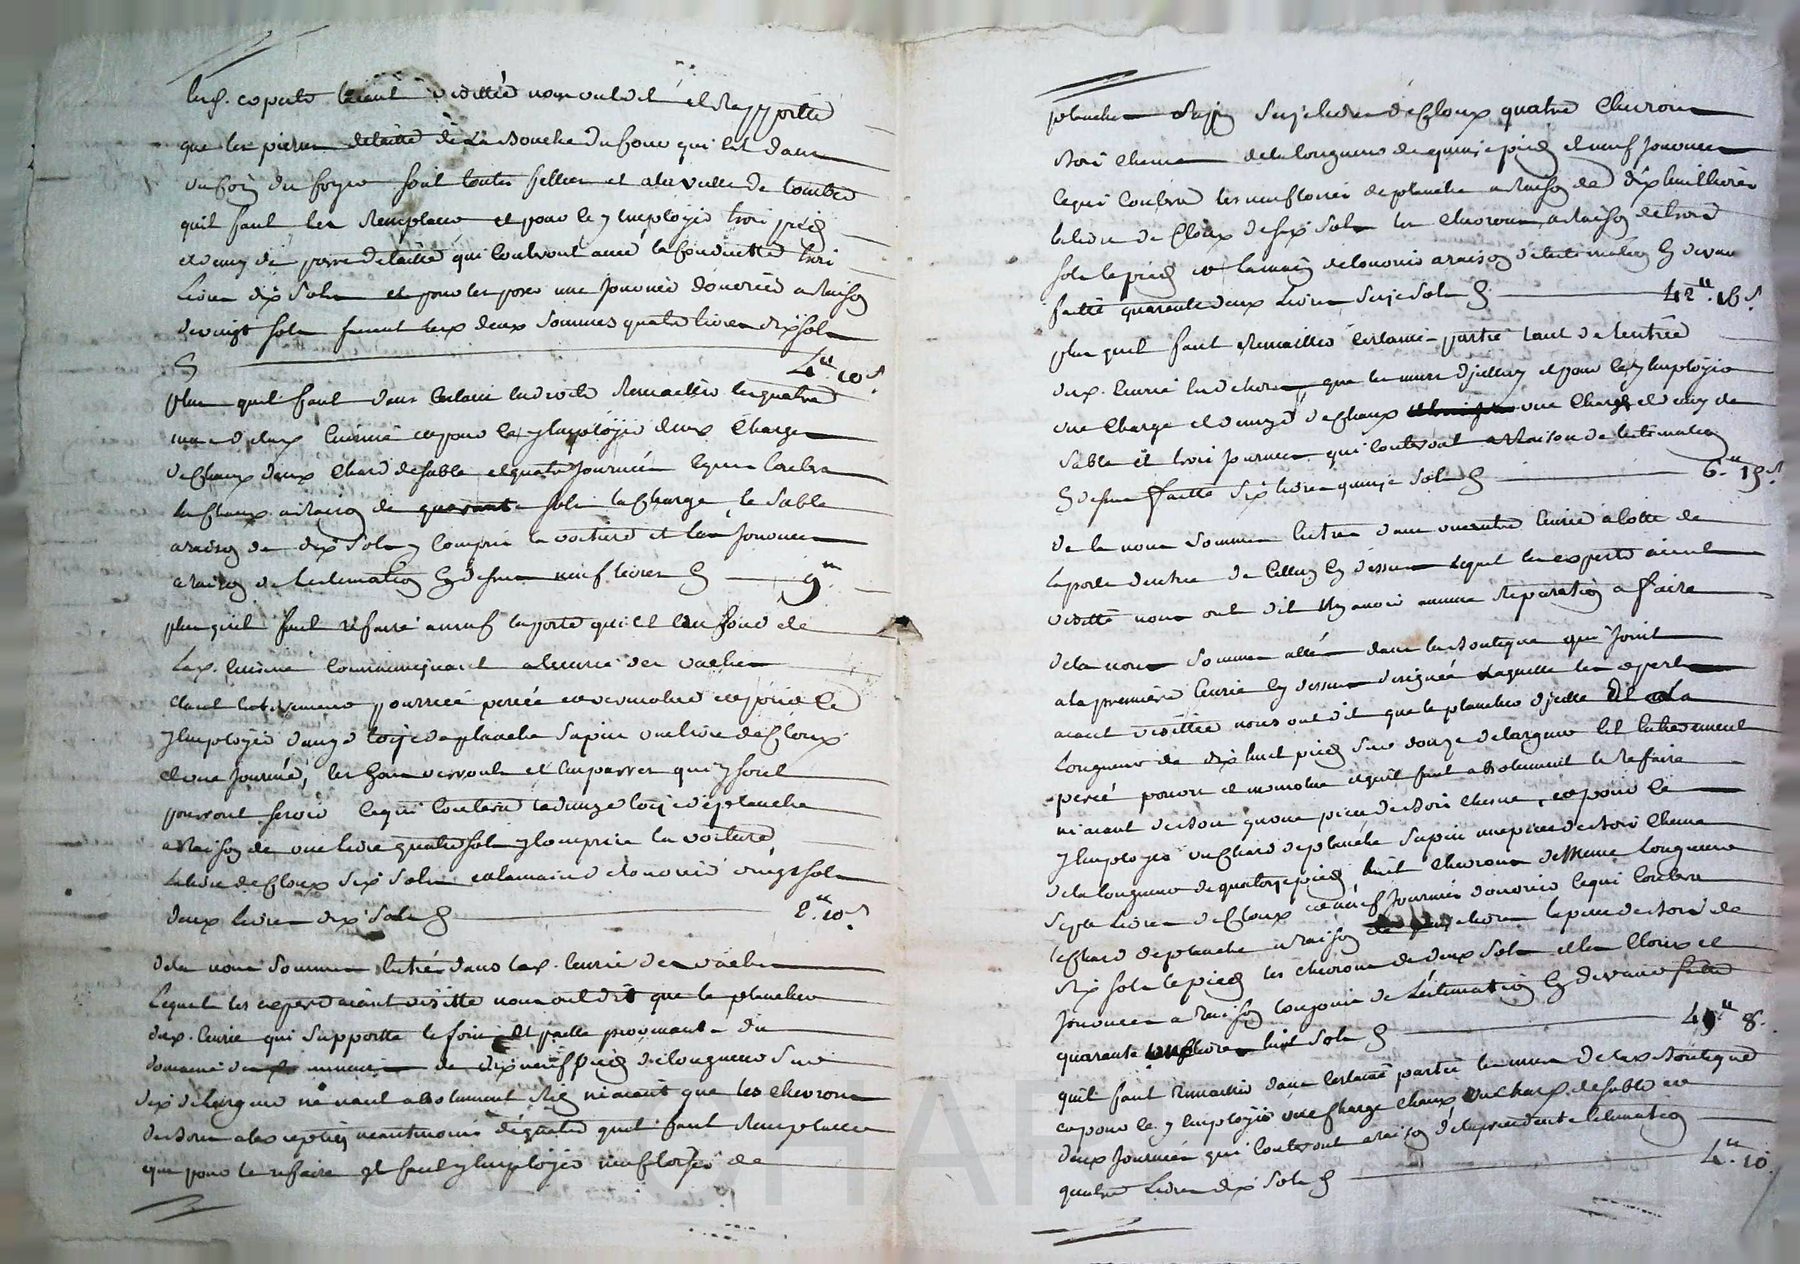 experts l'aiant visittée nous ont dit et Rapportté
que les pierres de taille de La Bouche du four qui Est dans
un Coin du foyer sont toutes fellées et a la veille de tomber
quil faut les Remplacer et pour le y Employer troi pied
et demy de pierre de taille qui Couteront avec la Conduitte troi
Livres dix Sols et pour les poser une journée d'ouvrier a Raison
de vingt sols faisant les deux sommes quatre livres dix sols
4tt 10s
plus quil faut dans Certain Endroits Remailler les quatre
murs de lad. Cuisine et pour le y Employer deux Charges
de Chaux deux Chard de sable et quatre journées Ce qui Coutera
la Chaux a raison de quarante sols la Charge, le Sable
a raison de dix Sols y Compris la voiture et les journées
a raison de L'estimation Cy dessus neuf livres 9tt
plus quil faut refaire a neuf la porte qui Est au fond de
lad. Cuisine Communiquant a lecurie des vaches
Etant Entierement pourriée percée et vermolue et pour le
y Employer douze toise de planche Sapin une livre de Cloux
et une journée, les Gons verrouls et Emparres qui y sont
pourront servir Ce qui Coutera la douze toise de planche
a Raison de une livre quatre sols y Compris la voiture
La livre de Cloux Six Sols et la main d'ouvrié vingt sols
deux Livres dix Sols 2tt 10s
de la nous sommes Entrés dans lad. Ecurie des vaches
Lequel les experts aiant visitté nous ont dit que le plancher
dud. Ecurie qui Supporte le foin Et paille provenant du
domaine des mineurs de dix neuf pieds de longueur Sur
dix de Largeur ne vaut absolument Rien ni aiant que les Chevrons
de bon a lexception neantmoins de quatre quil faut Remplacer
que pour le refaire il faut y Employer neuf toises de
planches Sapin Seize livres de Cloux quatre Chevrons
Boi Chene de la longueur de quinze pied et neuf journées
Ce qui Coutera les neuf toises de planche a Raison de dix huit livres
la livre de Cloux de six Sols les Chevrons a Raison de trois
sols le pied et la main de louvrier a raison de lestimation Cy devant
faitte quarante deux Livres Seize Sols 42tt 16s
plus quil faut Remailler Certaine partie tant de lentrée
dud. Ecurie En dehors que les murs d'jcelluy et pour le y Employer
une Charge et demye de Chaux une Charge et demy de
Sable et troi journées qui Couteront a Raison de lestimation
Cy dessus faitte Six livres quinze Sols 6tt 15s
de la nous sommes Entrés dans une autre Ecurie a Cotté de
la porte dentrée de Celluy Cy dessus Lequel les experts aiant
visitté nous ont dit N'y avoir aucune reparation a faire
de la nous sommes allés dans la Boutique qui joint
a la premiere Ecurie Cy dessus designée Laquelle les experts
aiant visittée nous ont dit que le plancher d'jcelle de La
Longueur de dix huit pied sur douze de largeur Est Entierement
percé pourri et vermolue et quil faut absolument le refaire
ni aiant de bon quune piece de Boi Chesne, et pour le
y Employer un Chard de planche Sapin une piece de Boi Chene
de la longueur de quatorze pied huit Chevrons de meme Longueur
Sept Livres de Cloux et neuf journées d'ouvrier Ce qui Coutera
le Chard de planche a raison livres la piece de Boi de
Six sols le pied les chevrons de deux Sols et les Cloux et
journées a Raison toujours de L'estimation Cy devant faitte
quarante livres huit Sols 8
quil faut Remailler dans Certaine partie les murs de lad. Boutique
et pour le y Employer une Charge Chaux un Chard de sable et
deux journées qui Couteront a raison de la precedente Estimation
quatre Livres dix Sols 4tt 10